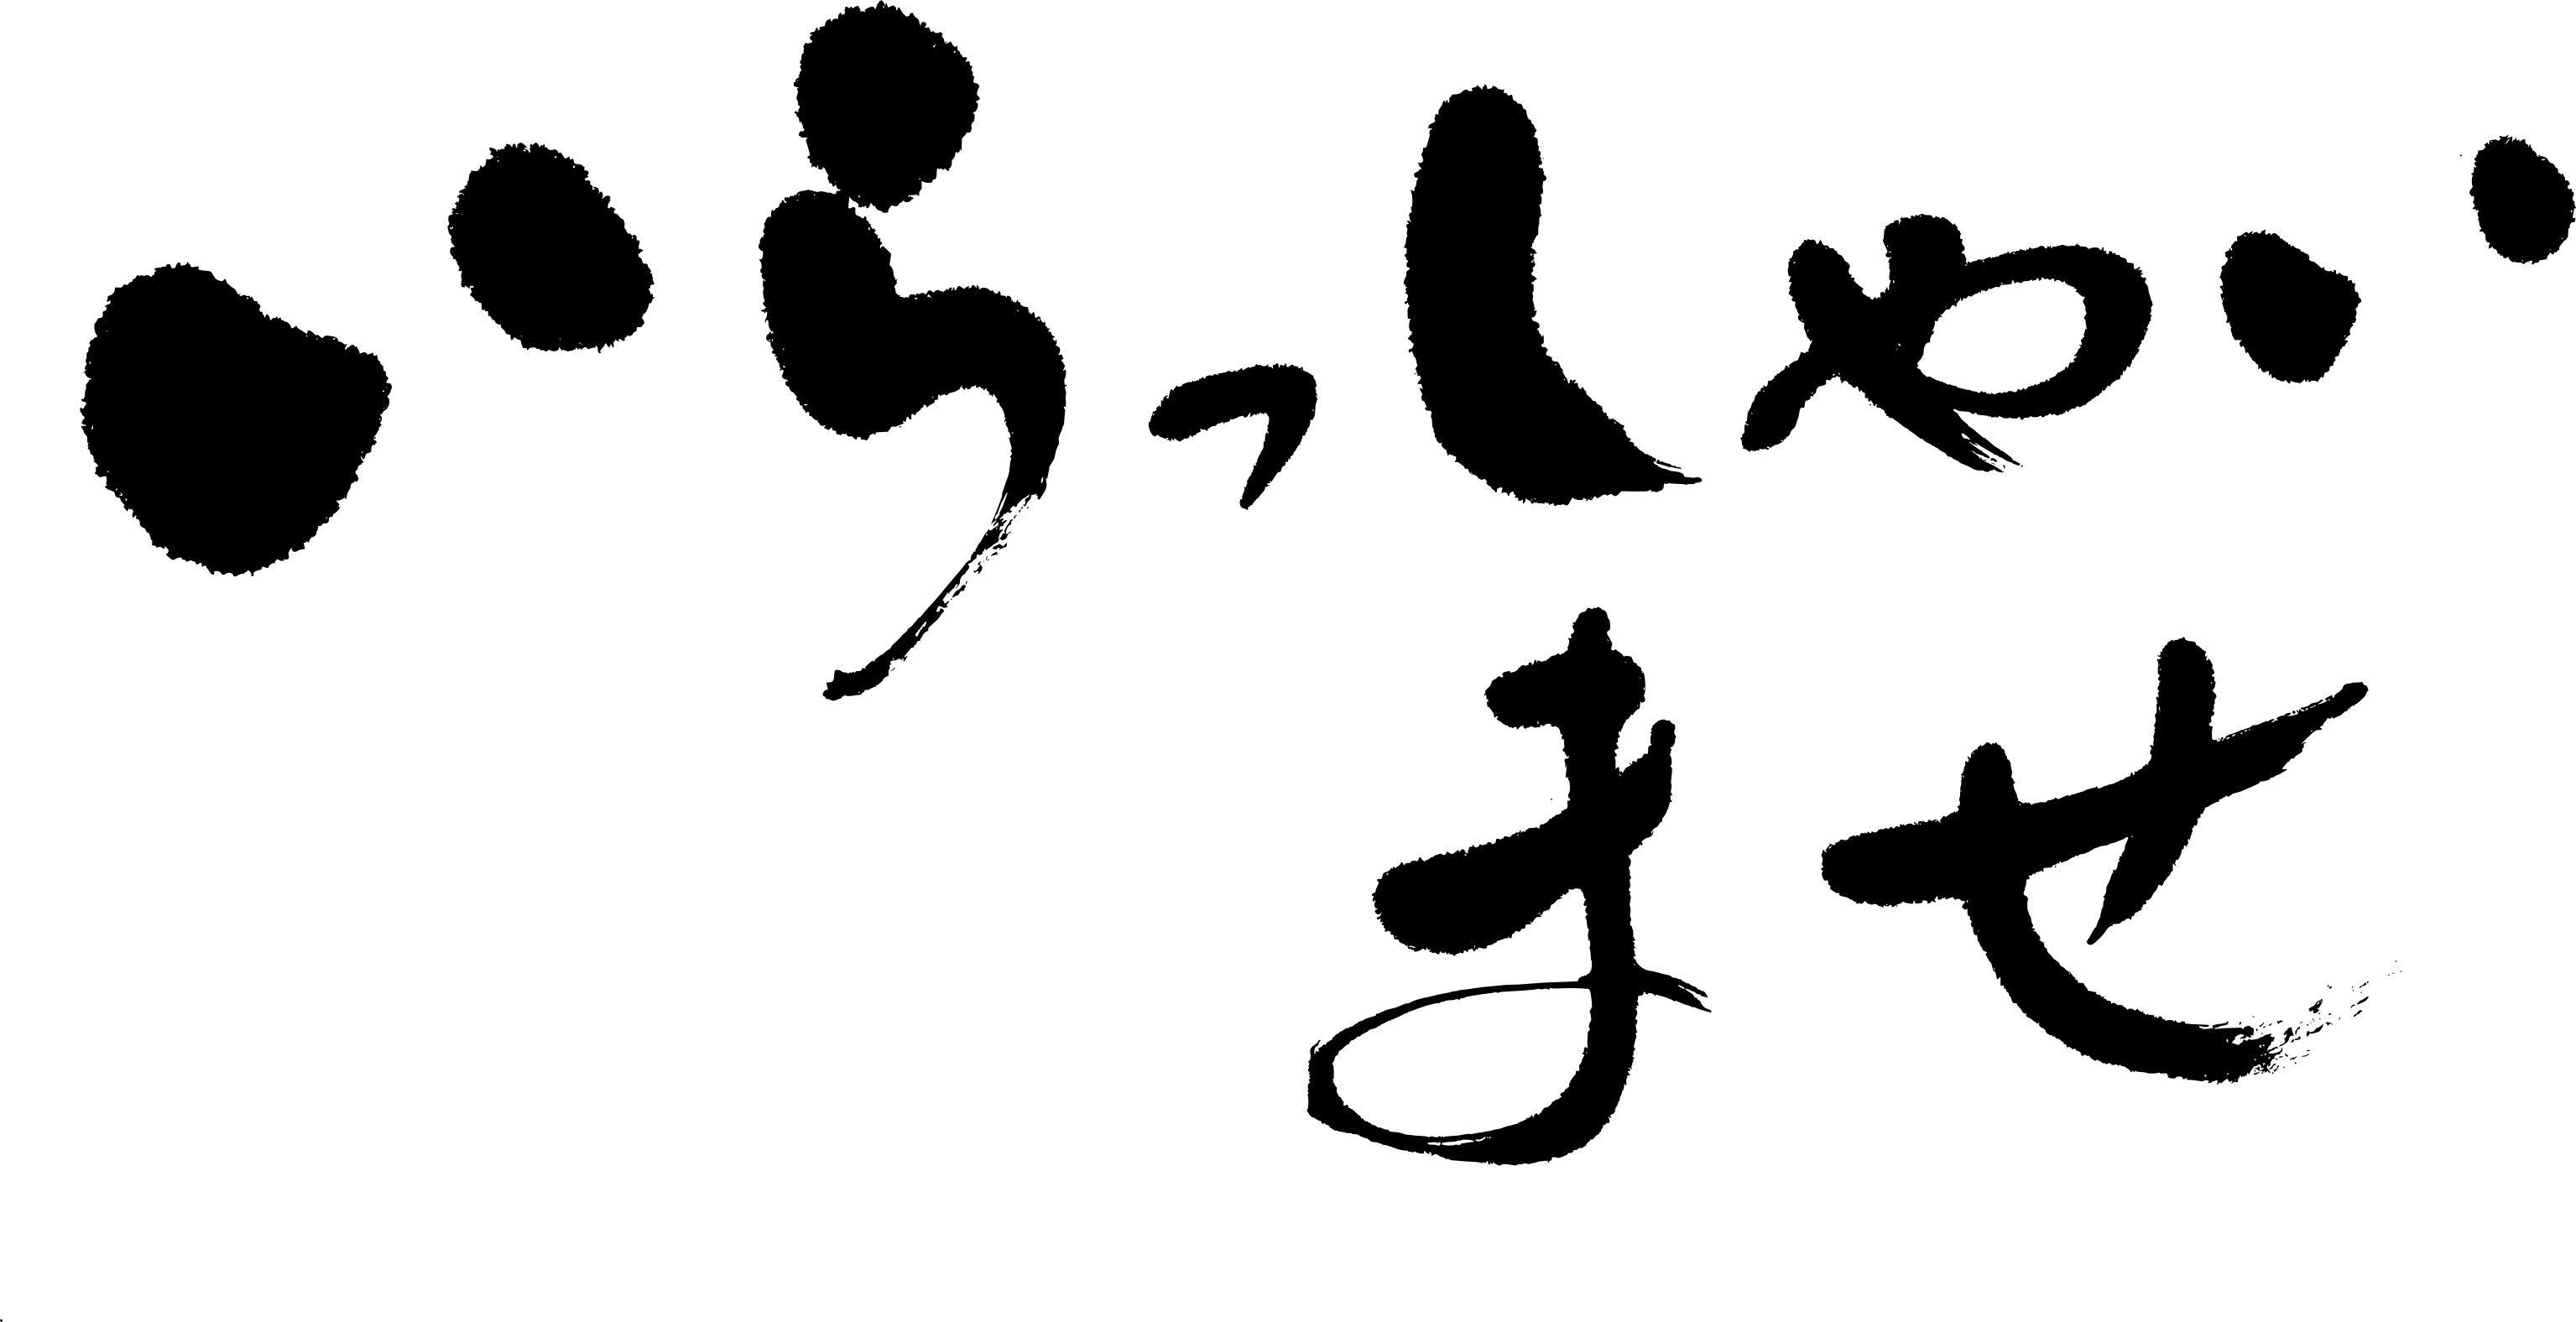 いらっしゃい
ませ